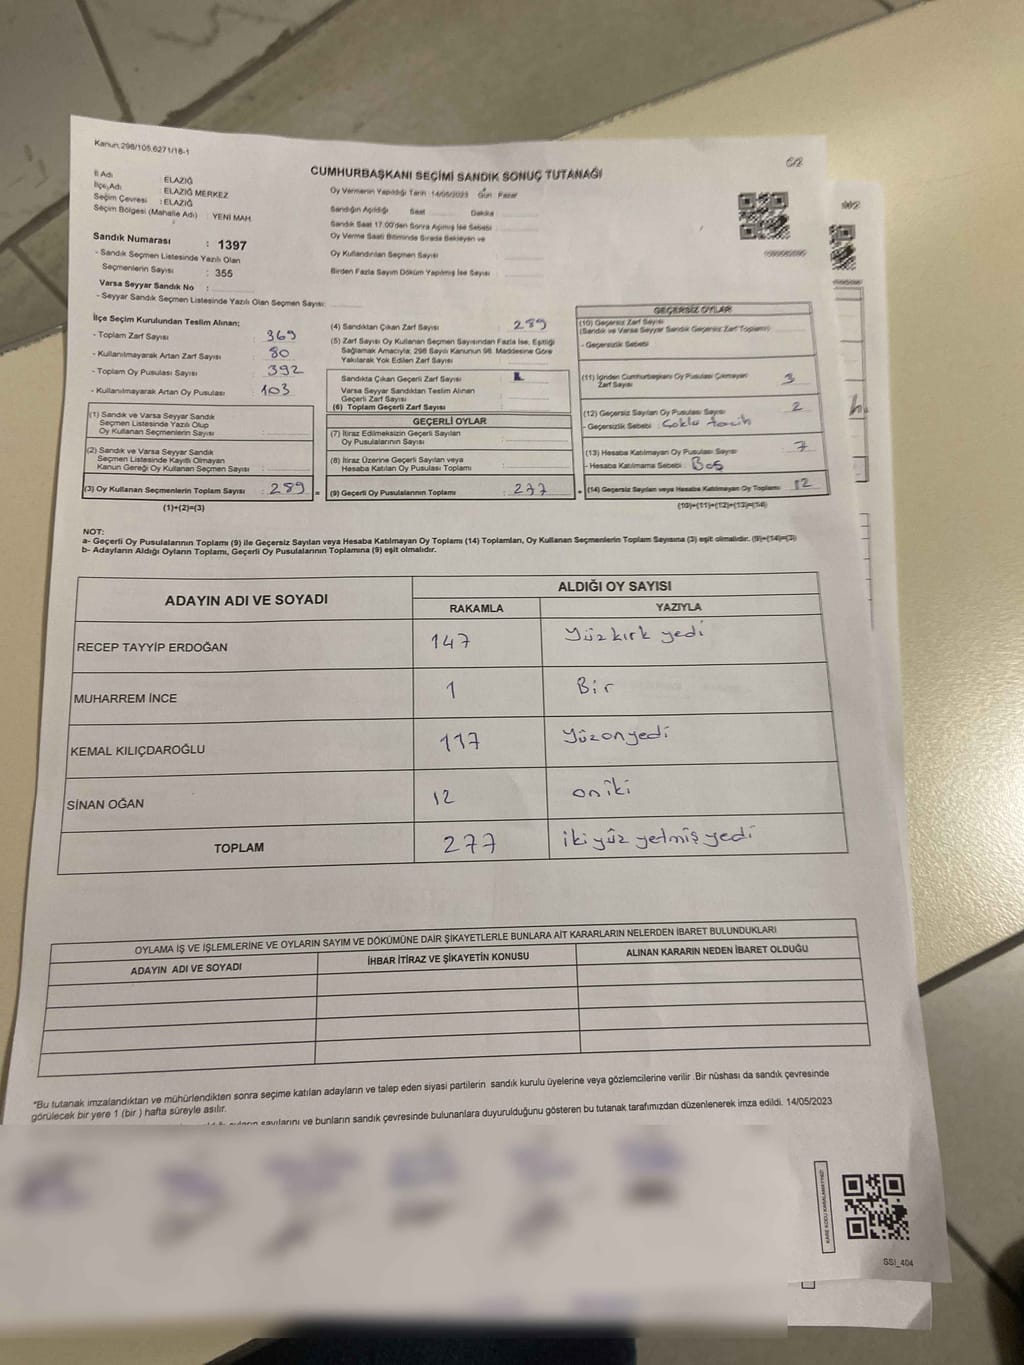 Kanun:298/105.6271/16-1
CUMHURBAŞKANI SEÇİMİ SANDIK SONUÇ TUTANAĞI
İl Adı : ELAZIĞ
İlçe Adı : ELAZIĞ MERKEZ
Seçim Çevresi : ELAZIĞ
Seçim Bölgesi (Mahalle Adı) : YENİ MAH.
Oy Vermenin Yapıldığı Tarih :14/05/2023 Gün : Pazar
Sandığın Açıldığı Saat Dakika
Sandık Saat 17.00'den Sonra Açılmış İse Sebebi
Oy Verme Saati Bitiminde Sırada Bekleyen ve
Oy Kullandırılan Seçmen Sayısı
Birden Fazla Sayım Döküm Yapılmış İse Sayısı
Sandık Numarası : 1397
- Sandık Seçmen Listesinde Yazılı Olan
Seçmenlerin Sayısı : 355
Varsa Seyyar Sandık No :
- Seyyar Sandık Seçmen Listesinde Yazılı Olan Seçmen Sayısı:
İlçe Seçim Kurulundan Teslim Alınan;
- Toplam Zarf Sayısı : 369
- Kullanılmayarak Artan Zarf Sayısı : 80
- Toplam Oy Pusulası Sayısı : 392
- Kullanılmayarak Artan Oy Pusulası : 103
(1) Sandık ve Varsa Seyyar Sandık
Seçmen Listesinde Yazılı Olup
Oy Kullanan Seçmenlerin Sayısı :
(2) Sandık ve Varsa Seyyar Sandık
Seçmen Listesinde Kayıtlı Olmayan
Kanun Gereği Oy Kullanan Seçmen Sayısı :
(3) Oy Kullanan Seçmenlerin Toplam Sayısı : 289 =
(1)+(2)=(3)
(4) Sandıktan Çıkan Zarf Sayısı : 289
(5) Zarf Sayısı Oy Kullanan Seçmen Sayısından Fazla İse, Eşitliği
Sağlamak Amacıyla; 298 Sayılı Kanunun 98. Maddesine Göre
Yakılarak Yok Edilen Zarf Sayısı
Sandıkta Çıkan Geçerli Zarf Sayısı
Varsa Seyyar Sandıktan Teslim Alınan
Geçerli Zarf Sayısı
(6) Toplam Geçerli Zarf Sayısı
GEÇERLİ OYLAR
(7) İtiraz Edilmeksizin Geçerli Sayılan
Oy Pusulalarının Sayısı
(8) İtiraz Üzerine Geçerli Sayılan veya
Hesaba Katılan Oy Pusulası Toplamı
(9) Geçerli Oy Pusulalarının Toplamı : 277 +
GEÇERSİZ OYLAR
(10) Geçersiz Zarf Sayısı
(Sandık ve Varsa Seyyar Sandık Geçersiz Zarf Toplamı)
- Geçersizlik Sebebi
(11) İçinden Cumhurbaşkanı Oy Pusulası Çıkmayan
Zarf Sayısı : 3
(12) Geçersiz Sayılan Oy Pusulası Sayısı : 2
- Geçersizlik Sebebi : Çoklu tercih
(13) Hesaba Katılmayan Oy Pusulası Sayısı : 7
- Hesaba Katılmama Sebebi : Boş
(14) Geçersiz Sayılan veya Hesaba Katılmayan Oy Toplamı : 12
(10)+(11)+(12)+(13)=(14)
NOT:
a- Geçerli Oy Pusulalarının Toplamı (9) ile Geçersiz Sayılan veya Hesaba Katılmayan Oy Toplamı (14) Toplamları, Oy Kullanan Seçmenlerin Toplam Sayısına (3) eşit olmalıdır. (9)+(14)=(3)
b- Adayların Aldığı Oyların Toplamı, Geçerli Oy Pusulalarının Toplamına (9) eşit olmalıdır.
ADAYIN ADI VE SOYADI
ALDIĞI OY SAYISI
RAKAMLA YAZIYLA
RECEP TAYYİP ERDOĞAN 147 Yüzkırk yedi
MUHARREM İNCE 1 Bir
KEMAL KILIÇDAROĞLU 117 Yüzonyedi
SİNAN OĞAN 12 oniki
TOPLAM 277 ikiyüz yetmiş yedi
OYLAMA İŞ VE İŞLEMLERİNE VE OYLARIN SAYIM VE DÖKÜMÜNE DAİR ŞİKAYETLERLE BUNLARA AİT KARARLARIN NELERDEN İBARET BULUNDUKLARI
ADAYIN ADI VE SOYADI İHBAR İTİRAZ VE ŞİKAYETİN KONUSU ALINAN KARARIN NEDEN İBARET OLDUĞU
*Bu tutanak imzalandıktan ve mühürlendikten sonra seçime katılan adayların ve talep eden siyasi partilerin sandık kurulu üyelerine veya gözlemcilerine verilir .Bir nüshası da sandık çevresinde
görülecek bir yere 1 (bir ) hafta süreyle asılır.
sayılarını ve bunların sandık çevresinde bulunanlara duyurulduğunu gösteren bu tutanak tarafımızdan düzenlenerek imza edildi. 14/05/2023
KARE KODU KARALAMAYINIZ!
SSI_404